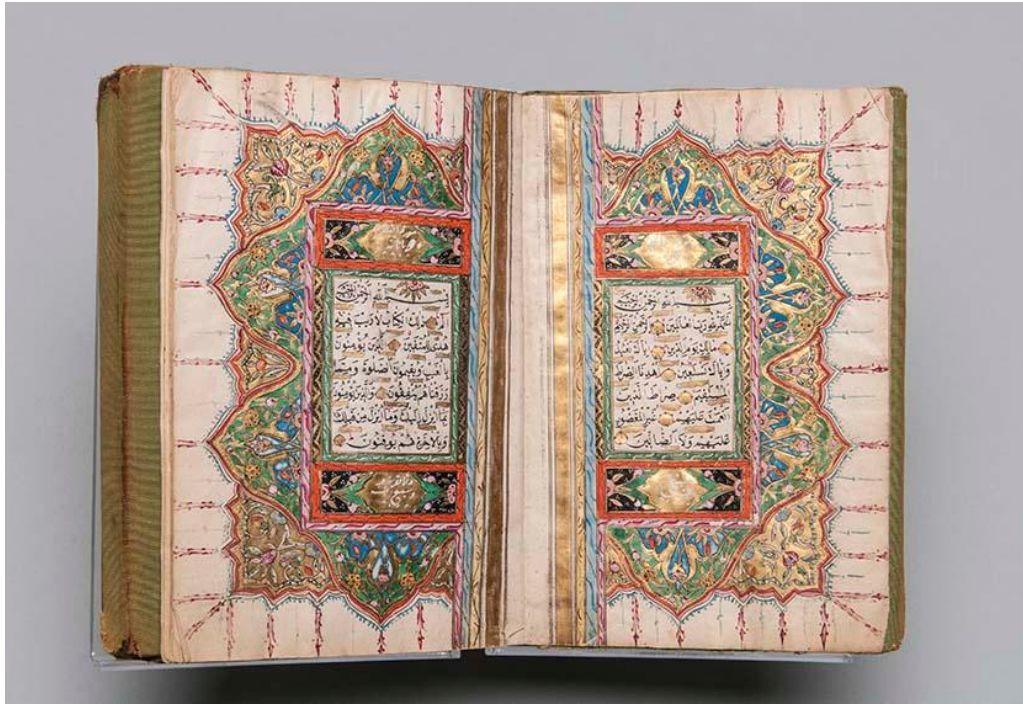 بسم الله الرحمن الرحيم
الحمد لله رب العالمين الرحمن الرحيم
مالك يوم الدين اياك نعبد
واياك نستعين اهدنا الصراط
المستقيم صراط الذين
انعمت عليهم غير المغضوب
عليهم ولا الضالين
بسم الله الرحمن الرحيم
الم ذلك الكتاب لا ريب فيه
هدى للمتقين الذين يؤمنون
بالغيب ويقيمون الصلوة ومما
رزقناهم ينفقون والذين يؤمنون
بما انزل اليك وما انزل من قبلك
وبالاخرة هم يوقنون